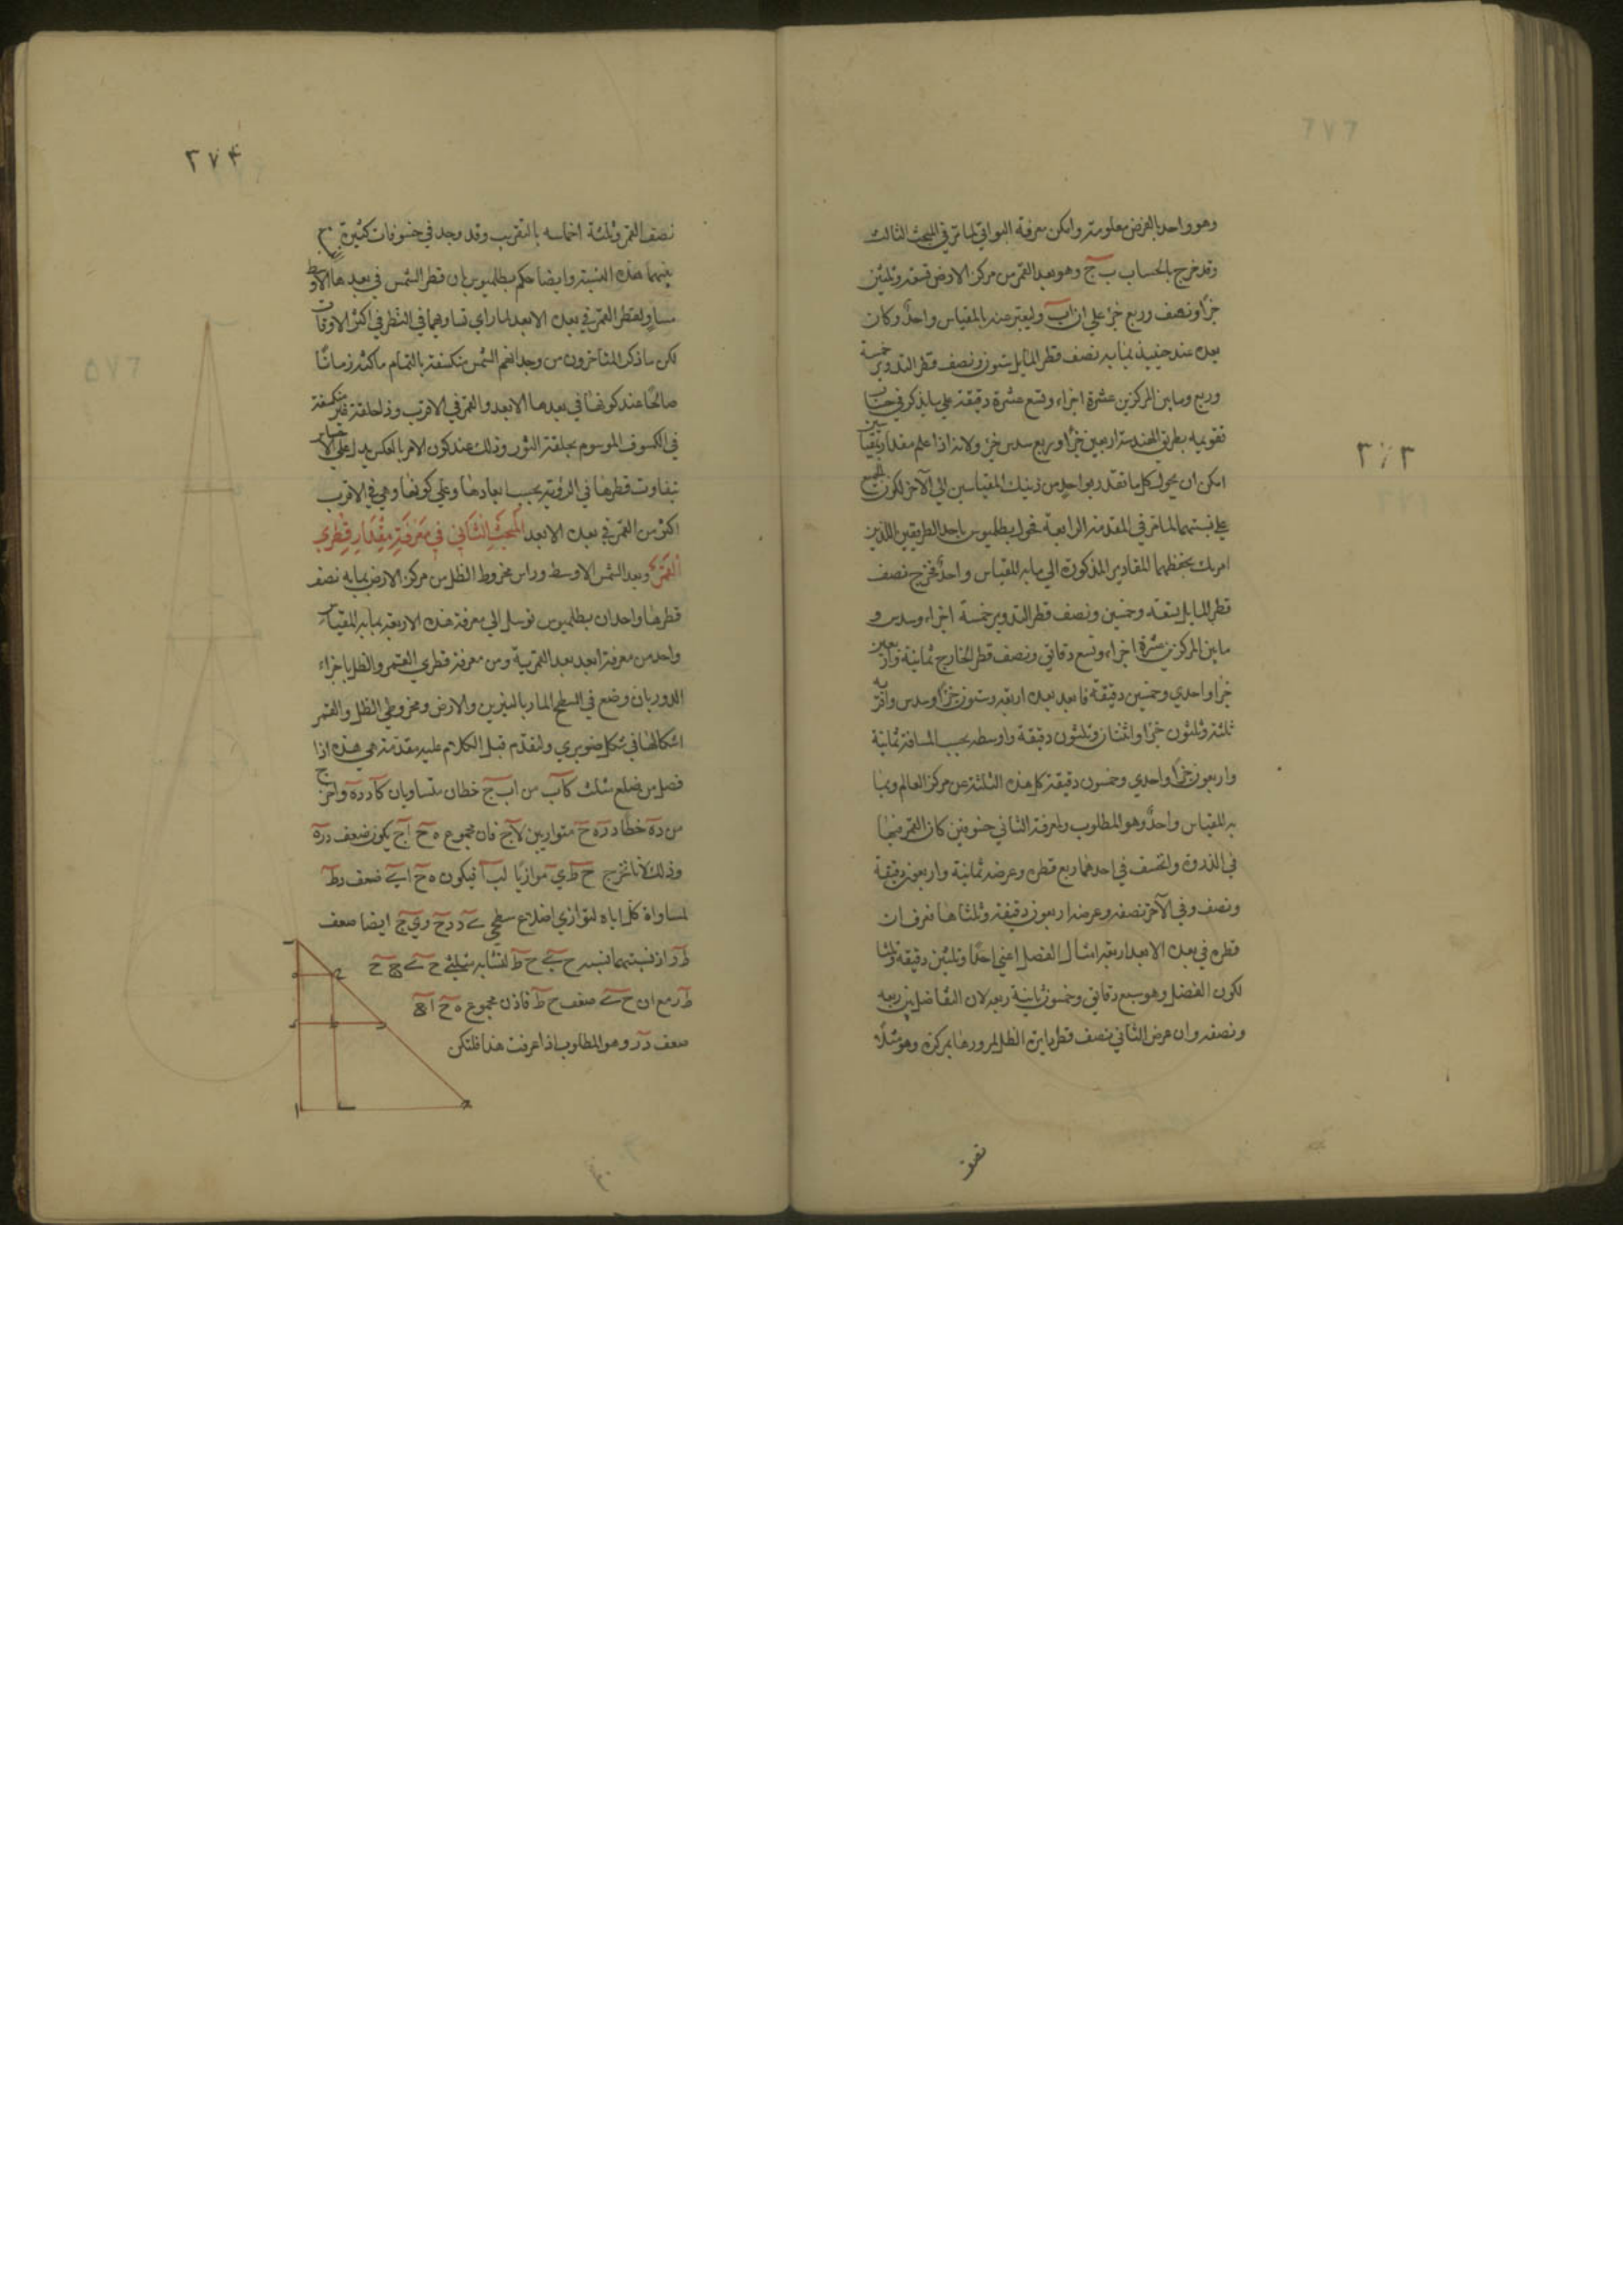 وهو واحد بالفرض معلومة وامكن معرفة البواقى لما مر فى المبحث الثالث
وقد خرج بالحساب ب ج وهو بعد القمر من مركز الارض تسعة وثلثين
جزأ ونصف وربع جزء على ان ا ب وليعتبر منه بالمقياس واحدٌ وكان
بعده عند حينيذ بما به نصف قطر المايل ستون ونصف قطر التدوير خمسة
وربع وما بين المركزين عشرة اجزاء وتسع عشرة دقيقة على ما يذكر فى حساب
تقويمه بطريق الهندسة اربعين جزأ وربع سدس جزء ولانه اذا علم مقدار بمقياسين
امكن ان يحول كل ما تقدر بواحد من ذينك المقياسين الى الآخر لكون
على نسبتهما لما مر فى المقدمة الرابعة فحول بطلميوس باحد الطريقين اللذين
امرتك بحفظهما المقادير المذكورة الى ما به المقياس واحدٌ فخرج نصف
قطر المايل تسعة وخمسين ونصف قطر التدوير خمسة اجزاء وسدس و
ما بين المركزين عشرة اجزاء وتسع دقائق ونصف قطر الخارج ثمانية واربعين
جزأ واحدى وخمسين دقيقة فابعد بعده اربعة وستون جزأ وسدس واقربه
ثلثة وثلثون جزأ واثنتان وثلثون دقيقة واوسطه بحسب المسافة ثمانية
واربعون جزأ واحدى وخمسون دقيقة كل هذه الثلثة عن مركز العالم وبما
به المقياس واحدٌ وهو المطلوب ولمعرفة الثانى خسوفين كان القمر فيهما
فى الذروة وانخسف فى احدهما ربع قطره وعرضه ثمانية واربعون دقيقة
ونصف وفى الآخر نصفه وعرضه اربعون دقيقة وثلثاها فعرف ان
قطره فى بعده الابعد اربعة امثال الفضل اعنى احدًا وثلثين دقيقة وثلثا
لكون الفضل وهو سبع دقائق وخمسون ثانية ربعه لان التفاضل بين ربعه
ونصفه وان عرض الثانى نصف قطر دايرة الظل لمرورها بمركزه وهو مثلا
نصف
٢٧٣
٢٧٤
نصف القمر وثلثة اخماسه بالتقريب وقد وجد فى خسوفات كثيرة
بينهما هذه النسبة وايضا حكم بطلميوس بان قطر الشمس فى بعدها الاوسط
مساوٍ لقطر القمر فى بعده الابعد لما راى تساويهما فى النظر فى اكثر الاوقات
لكن ما ذكره المتاخرون من وجدانهم الشمس منكسفة بالتمام ماكثة زمانًا
صالحًا عند كونها فى بعدها الابعد والقمر فى الاقرب وذا حلقة غير منكسفة
فى الكسوف الموسوم بحلقة النور وذلك عند كون الامر بالعكس يدل على
تفاوت قطرها فى الرؤية بحسب ابعادها وعلى كونها وهى فى الاقرب
اكثر من القمر فى بعده الابعد المبحث الثانى فى معرفة مقدار قطرى
القمر وبعد الشمس الاوسط وراس مخروط الظل من مركز الارض بما به نصف
قطرها واحد ان بطلميوس توسل الى معرفة هذه الاربعة بما به المقياس
واحد من معرفة ابعد بعد القمر به ومن معرفة قطرى القمر والظل باجزاء
الدور بان وضع فى السطح المار بالنيرين والارض ومخروطى الظل والقمر
اشكالها فى شكل صنوبرى ولنقدم قبل الكلام عليه مقدمة هى هذه اذا
فصل من ضلع مثلث كآب من ا ب ج خطان متساويان كآد ده واخرج
من ده خطا دز ه ح متوازيين لاج فان مجموع ه ح ا ج يكون ضعف دز
وذلك لانا نخرج ح ط ى موازيًا لب آ فيكون ه ح ا ى ضعف د ط
لمساواة كل اياه لتوازى اضلاع سطحى ى د د ح وى ج ايضا ضعف
ط ز اذ نسبتهما نسبة ح ى ح ط لتشابه مثلثى ح ى ج ح
ط ز مع ان ح ى ضعف ح ط فاذن مجموع ه ح ا ج
ضعف د ز وهو المطلوب اذا عرفت هذا فلتكن